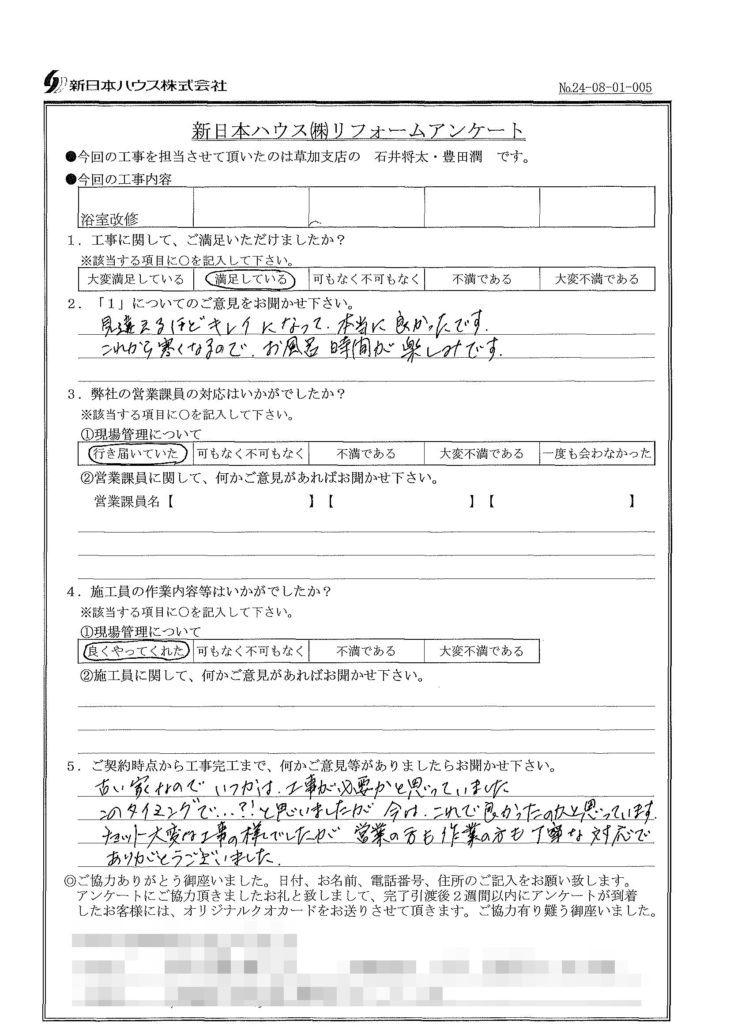 新日本ハウス株式会社
№24-08-01-005
新日本ハウス㈱リフォームアンケート
●今回の工事を担当させて頂いたのは草加支店の 石井将太・豊田潤 です。
●今回の工事内容
浴室改修
1．工事に関して、ご満足いただけましたか？
※該当する項目に〇を記入して下さい。
大変満足している 満足している 可もなく不可もなく 不満である 大変不満である
2．「1」についてのご意見をお聞かせ下さい。
見違えるほどキレイになって、本当に良かったです。
これから寒くなるので、お風呂時間が楽しみです。
3．弊社の営業課員の対応はいかがでしたか？
※該当する項目に〇を記入して下さい。
①現場管理について
行き届いていた 可もなく不可もなく 不満である 大変不満である 一度も会わなかった
②営業課員に関して、何かご意見があればお聞かせ下さい。
営業課員名【 】【 】【 】
4．施工員の作業内容等はいかがでしたか？
※該当する項目に〇を記入して下さい。
①現場管理について
良くやってくれた 可もなく不可もなく 不満である 大変不満である
②施工員に関して、何かご意見があればお聞かせ下さい。
5．ご契約時点から工事完工まで、何かご意見等がありましたらお聞かせ下さい。
古い家なので いつかは、工事が必要かと思っていました
このタイミングで...?!と思いましたが 今は、これで良かったのだと思っています。
チョット大変な工事の様でしたが 営業の方も作業の方も丁寧な対応で
ありがとうございました。
◎ご協力ありがとう御座いました。日付、お名前、電話番号、住所のご記入をお願い致します。
アンケートにご協力頂きましたお礼と致しまして、完了引渡後2週間以内にアンケートが到着
したお客様には、オリジナルクオカードをお送りさせて頂きます。ご協力有り難う御座いました。